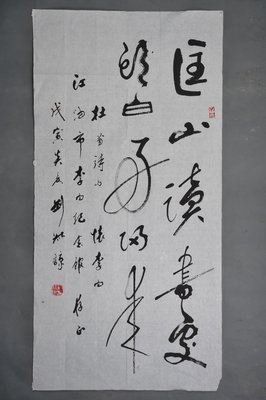 匡山读书处
头白好归来
杜甫诗句 怀李白
江油市李白纪念馆 存正
戊寅炎夏